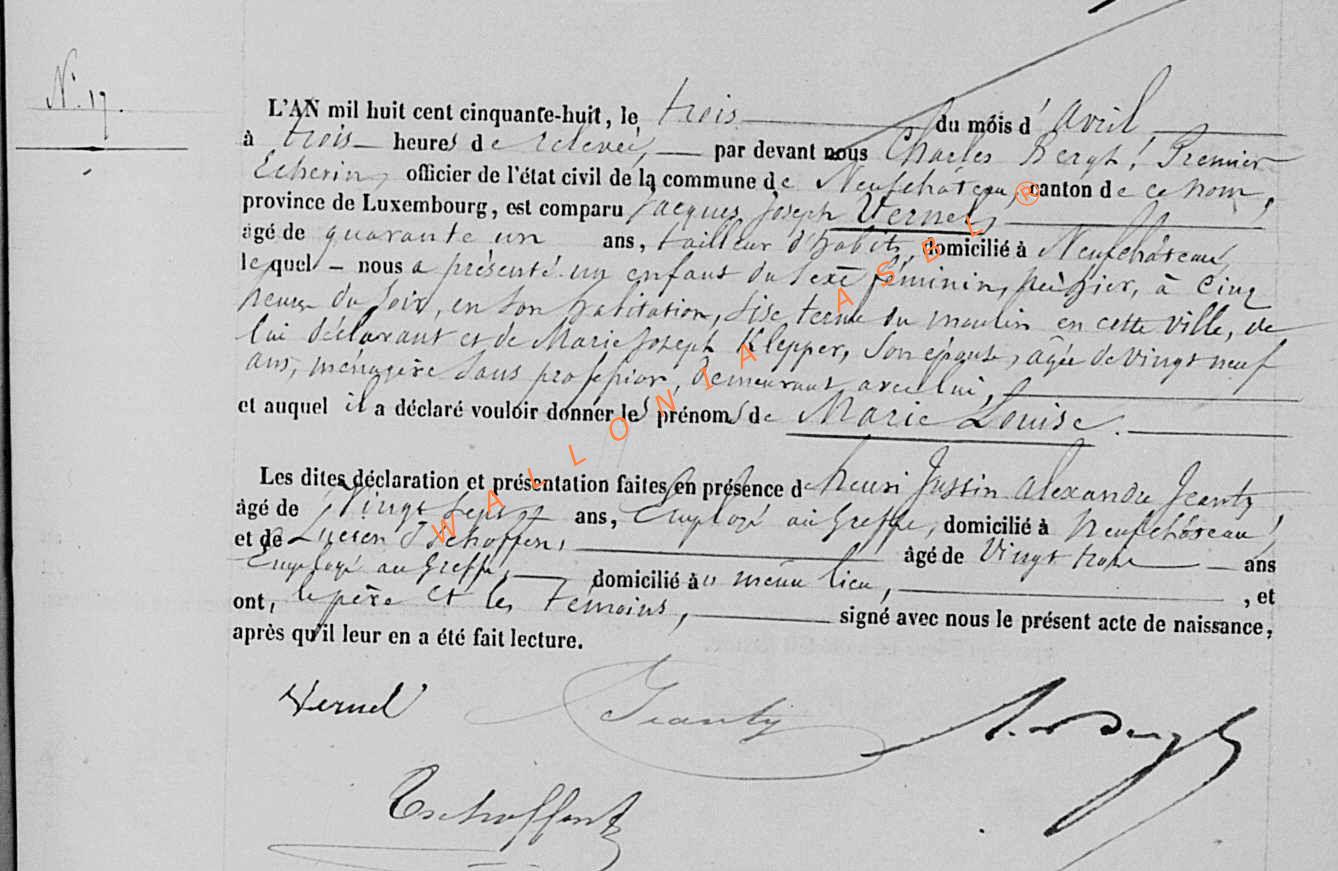 N° 17.
L'AN mil huit cent cinquante-huit, le trois du mois d'Avril
à trois heures de relevée, par devant nous Charles Bergh, Premier
Echevin, officier de l'état civil de la commune de Neufchâteau, canton de ce nom,
province de Luxembourg, est comparu Jacques Joseph Vernel,
âgé de quarante un ans, tailleur d'habits, domicilié à Neufchâteau,
lequel nous a présenté un enfant du sexe féminin, né hier, à cinq
heures du soir, en son habitation, sise terme du moulin en cette ville, de
lui déclarant et de Marie Joseph Klepper, son épouse, âgée de vingt neuf
ans, ménagère sans profession, demeurant avec lui,
et auquel il a déclaré vouloir donner les prénoms de Marie Louise.
Les dites déclaration et présentation faites en présence de henri Justin Alexandre Jeanty
âgé de Vingt sept ans, Employé au Greffe, domicilié à Neufchâteau,
et de Lucien Tschoffen, âgé de Vingt trois ans
Employé au Greffe, domicilié au même lieu, , et
ont, le père et les témoins, signé avec nous le présent acte de naissance,
après qu'il leur en a été fait lecture.
Vernel Jeanty
Tschoffen
WALLONIA ASBL®